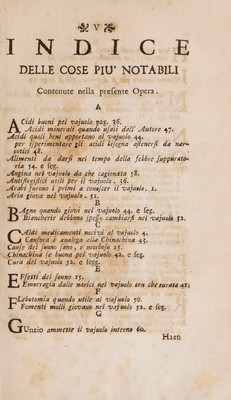 V
INDICE
DELLE COSE PIU' NOTABILI
Contenute nella presente Opera.
A
Acidi buoni pel vajuolo pag. 36.
Acidi minerali quando usati dall' Autore 47.
Acidi quali beni apportano al vajuolo 44.
per isperimentare gli acidi bisogna astenersi da nar-
cotici 48.
Allimenti da darsi nel tempo della febbre suppurato-
ria 54. e seg.
Angina nel vajuolo da che cagionata 58.
Antiflogistici utili per il vajuolo. 36.
Arabi furono i primi a conoscer il vajuolo. 1.
Aria giova nel vajuolo. 51.
B
Bagno quando giovi nel vajuolo 44. e seg.
Biancherie debbono spesso cambiarsi nel vajuolo 52.
C
Caldi medicamenti nocivi al vajuolo 4.
Canfora è analoga alla Chinachina 43.
Cause del sonno sano, e morboso 15.
Chinachina se buona pel vajuolo 42. e seg.
Cura del vajuolo 52. e segg.
E
Effetti del sonno 15.
Emorragia dalle narici nel vajuolo con che curata 42;
F
Flebotomia quando utile al vajuolo 50.
Fomenti molli giovano nel vajuolo 52. e seg.
G
Gunzio ammette il vajuolo interno 60.
Haen